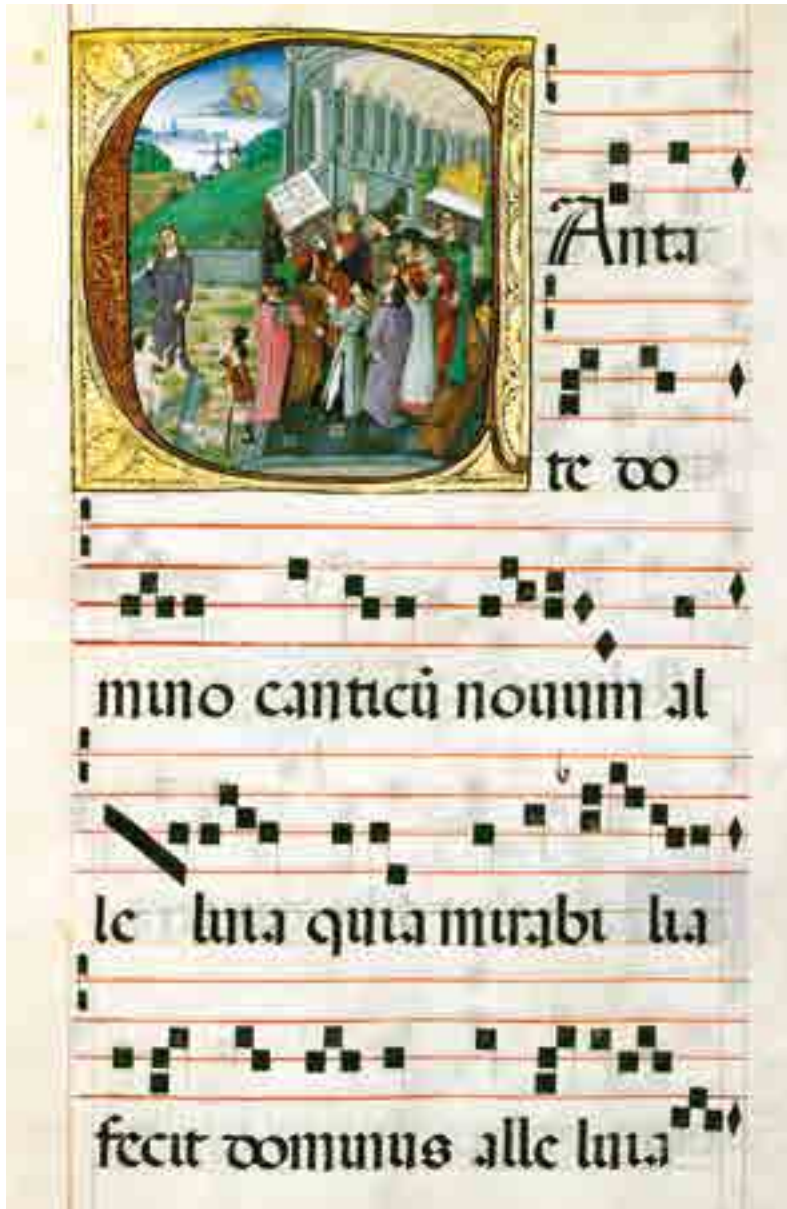 CAnta
te do
mino canticū nouum al
le luia quia mirabi lia
fecit dominus alle luia